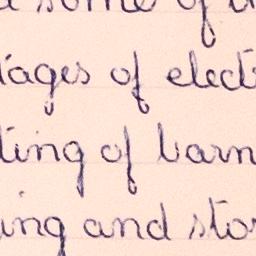 some of
tages of elect
ting of barn
ing and stor